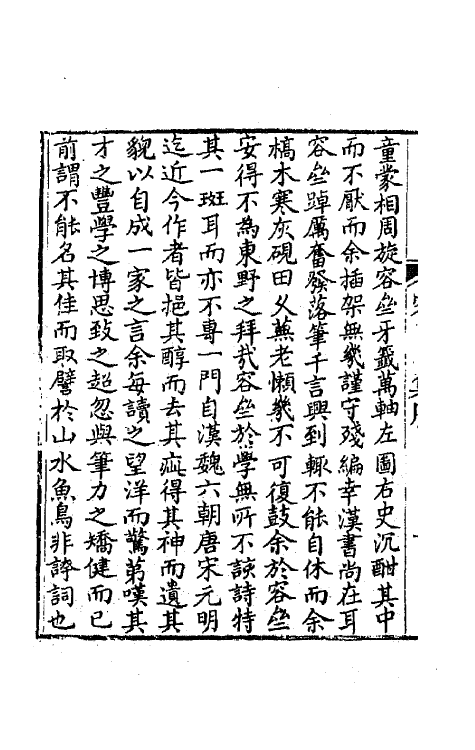 童蒙相周旋容壑牙籤萬軸左圖右史沉酣其中
而不厭而余插架無幾謹守殘編幸漢書尚在耳
容壑踔厲奮發落筆千言興到輒不能自休而余
槁木寒灰硯田久蕪老懶幾不可復鼓余於容壑
安得不為東野之拜哉容壑於學無所不該詩特
其一斑耳而亦不專一門自漢魏六朝唐宋元明
迄近今作者皆挹其醇而去其疵得其神而遺其
貌以自成一家之言余每讀之望洋而驚第嘆其
才之豐學之博思致之超忽與筆力之矯健而已
前謂不能名其佳而取譬於山水魚鳥非誇詞也